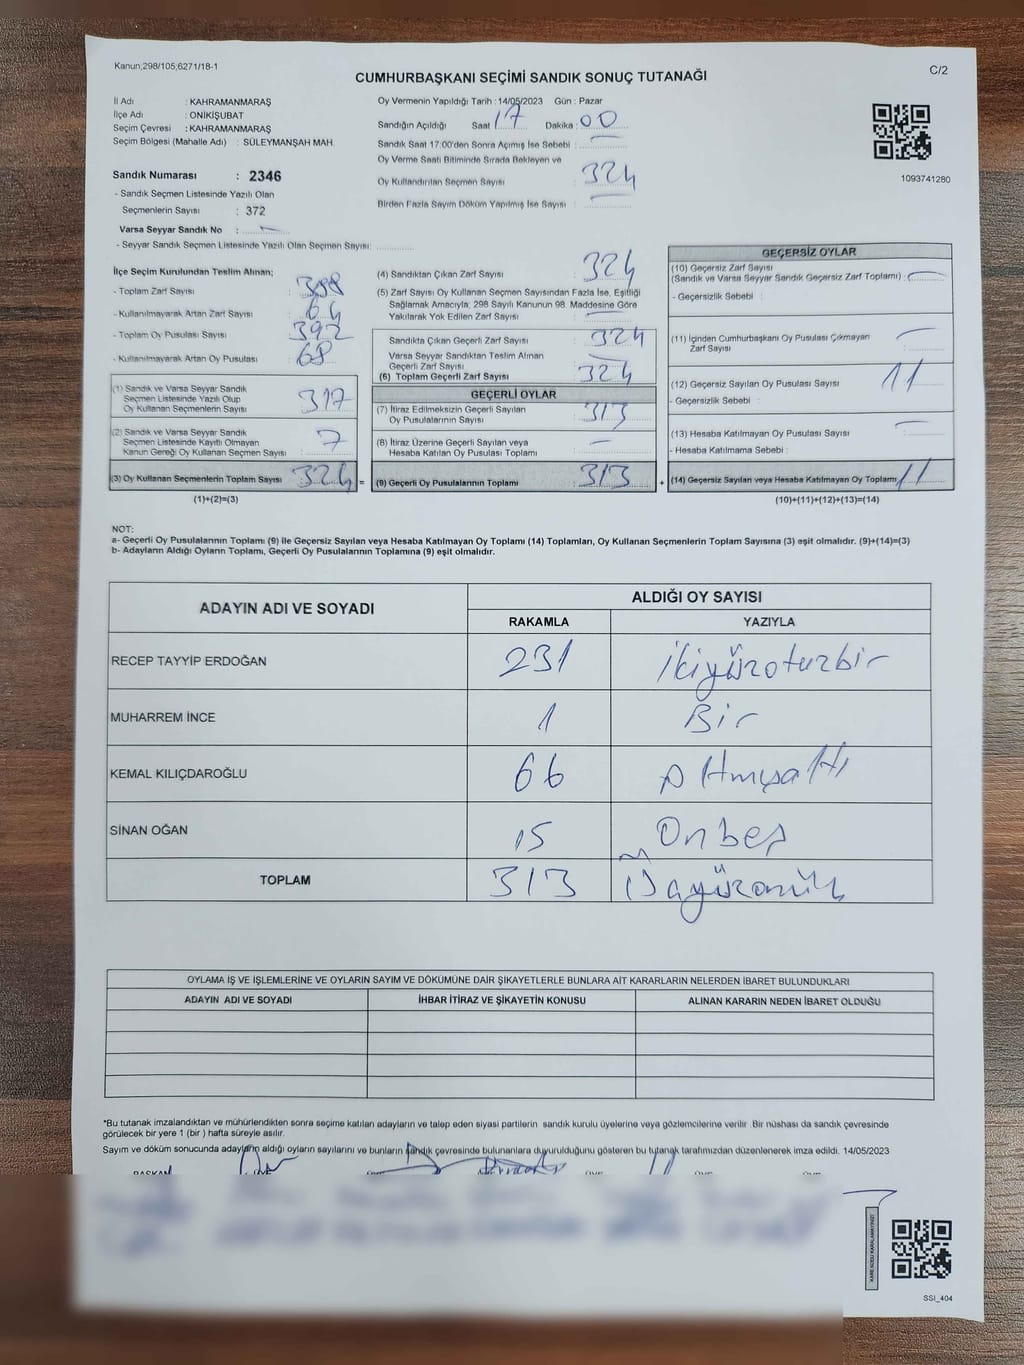 Kanun;298/105;6271/18-1
C/2
CUMHURBAŞKANI SEÇİMİ SANDIK SONUÇ TUTANAĞI
İl Adı : KAHRAMANMARAŞ
İlçe Adı : ONİKİŞUBAT
Seçim Çevresi : KAHRAMANMARAŞ
Seçim Bölgesi (Mahalle Adı) : SÜLEYMANŞAH MAH.
Sandık Numarası : 2346
- Sandık Seçmen Listesinde Yazılı Olan
Seçmenlerin Sayısı : 372
Varsa Seyyar Sandık No : -
- Seyyar Sandık Seçmen Listesinde Yazılı Olan Seçmen Sayısı:
Oy Vermenin Yapıldığı Tarih : 14/05/2023 Gün : Pazar
Sandığın Açıldığı Saat 17 Dakika : 00
Sandık Saat 17:00'den Sonra Açılmış İse Sebebi : -
Oy Verme Saati Bitiminde Sırada Bekleyen ve
Oy Kullandırılan Seçmen Sayısı : 324
Birden Fazla Sayım Döküm Yapılmış İse Sayısı : -
1093741280
İlçe Seçim Kurulundan Teslim Alınan;
- Toplam Zarf Sayısı :
- Kullanılmayarak Artan Zarf Sayısı : 64
- Toplam Oy Pusulası Sayısı : 392
- Kullanılmayarak Artan Oy Pusulası : 68
(1) Sandık ve Varsa Seyyar Sandık
Seçmen Listesinde Yazılı Olup
Oy Kullanan Seçmenlerin Sayısı : 317
(2) Sandık ve Varsa Seyyar Sandık
Seçmen Listesinde Kayıtlı Olmayan
Kanun Gereği Oy Kullanan Seçmen Sayısı : 7
(3) Oy Kullanan Seçmenlerin Toplam Sayısı : 324 =
(1)+(2)=(3)
(4) Sandıktan Çıkan Zarf Sayısı : 324
(5) Zarf Sayısı Oy Kullanan Seçmen Sayısından Fazla İse, Eşitliği
Sağlamak Amacıyla, 298 Sayılı Kanunun 98. Maddesine Göre
Yakılarak Yok Edilen Zarf Sayısı : -
Sandıkta Çıkan Geçerli Zarf Sayısı : 324
Varsa Seyyar Sandıktan Teslim Alınan
Geçerli Zarf Sayısı : -
(6) Toplam Geçerli Zarf Sayısı : 324
GEÇERLİ OYLAR
(7) İtiraz Edilmeksizin Geçerli Sayılan
Oy Pusulalarının Sayısı : 313
(8) İtiraz Üzerine Geçerli Sayılan veya
Hesaba Katılan Oy Pusulası Toplamı : -
(9) Geçerli Oy Pusulalarının Toplamı : 313 +
GEÇERSİZ OYLAR
(10) Geçersiz Zarf Sayısı
(Sandık ve Varsa Seyyar Sandık Geçersiz Zarf Toplamı) : -
- Geçersizlik Sebebi :
(11) İçinden Cumhurbaşkanı Oy Pusulası Çıkmayan
Zarf Sayısı : -
(12) Geçersiz Sayılan Oy Pusulası Sayısı : 11
- Geçersizlik Sebebi :
(13) Hesaba Katılmayan Oy Pusulası Sayısı : -
- Hesaba Katılmama Sebebi :
(14) Geçersiz Sayılan veya Hesaba Katılmayan Oy Toplamı : 11
(10)+(11)+(12)+(13)=(14)
NOT:
a- Geçerli Oy Pusulalarının Toplamı (9) ile Geçersiz Sayılan veya Hesaba Katılmayan Oy Toplamı (14) Toplamları, Oy Kullanan Seçmenlerin Toplam Sayısına (3) eşit olmalıdır. (9)+(14)=(3)
b- Adayların Aldığı Oyların Toplamı, Geçerli Oy Pusulalarının Toplamına (9) eşit olmalıdır.
ADAYIN ADI VE SOYADI
ALDIĞI OY SAYISI
RAKAMLA YAZIYLA
RECEP TAYYİP ERDOĞAN 231 ikiyüzotuzbir
MUHARREM İNCE 1 Bir
KEMAL KILIÇDAROĞLU 66 Altmışaltı
SİNAN OĞAN 15 Onbeş
TOPLAM 313
OYLAMA İŞ VE İŞLEMLERİNE VE OYLARIN SAYIM VE DÖKÜMÜNE DAİR ŞİKAYETLERLE BUNLARA AİT KARARLARIN NELERDEN İBARET BULUNDUKLARI
ADAYIN ADI VE SOYADI İHBAR İTİRAZ VE ŞİKAYETİN KONUSU ALINAN KARARIN NEDEN İBARET OLDUĞU
*Bu tutanak imzalandıktan ve mühürlendikten sonra seçime katılan adayların ve talep eden siyasi partilerin sandık kurulu üyelerine veya gözlemcilerine verilir. Bir nüshası da sandık çevresinde
görülecek bir yere 1 (bir ) hafta süreyle asılır.
Sayım ve döküm sonucunda adayların aldığı oyların sayılarını ve bunların sandık çevresinde bulunanlara duyurulduğunu gösteren bu tutanak tarafımızdan düzenlenerek imza edildi. 14/05/2023
BAŞKAN
KARE KODU KARALAMAYINIZ!
SSI_404